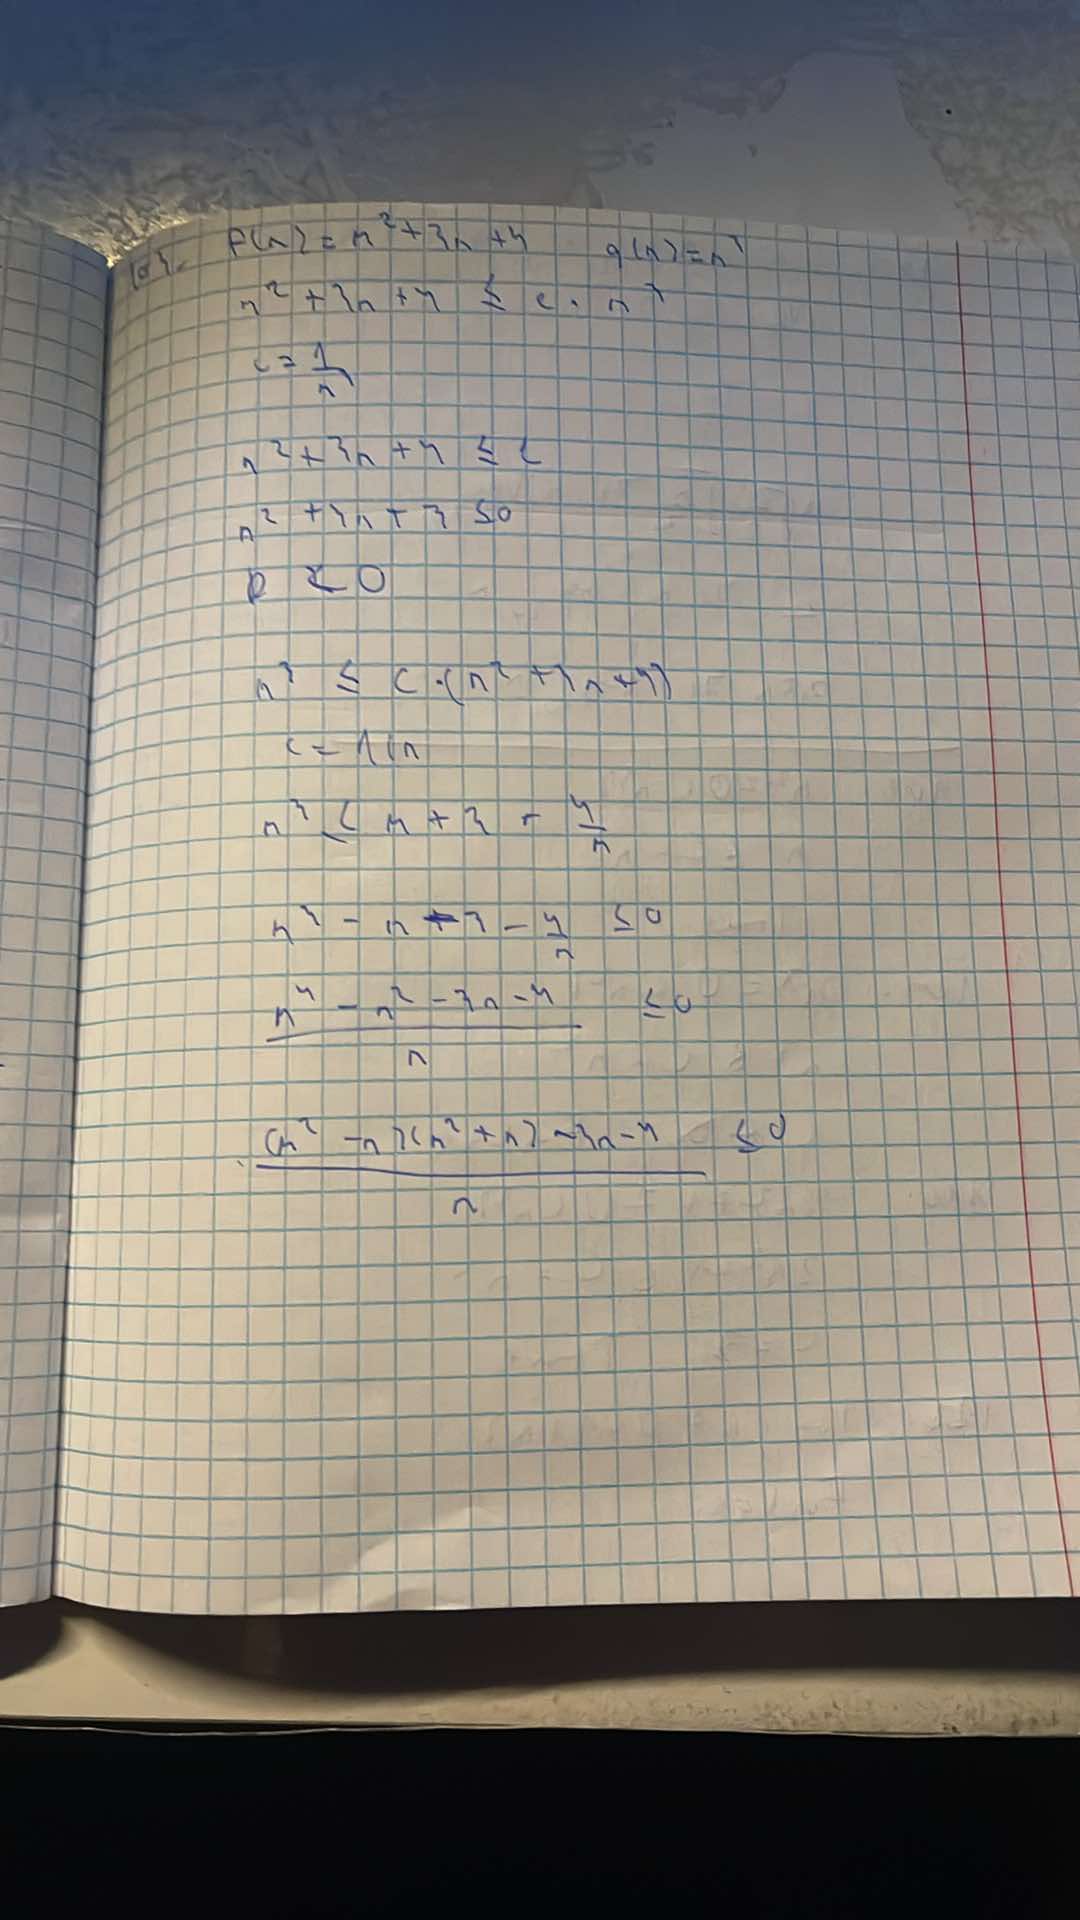 f(n) = n² + 3n + 4 g(n) = n³
n² + 3n + 4 ≤ c · n³
c = 1/n
n² + 3n + 4 ≤ 1
n² + 3n + 3 ≤ 0
D < 0
n³ ≤ c · (n² + 3n + 4)
c = 1/n
n³ ≤ n + 3 + 4/n
n³ - n - 3 - 4/n ≤ 0
(n⁴ - n² - 3n - 4)/n ≤ 0
((n² - n)(n² + n) - 3n - 4)/n ≤ 0